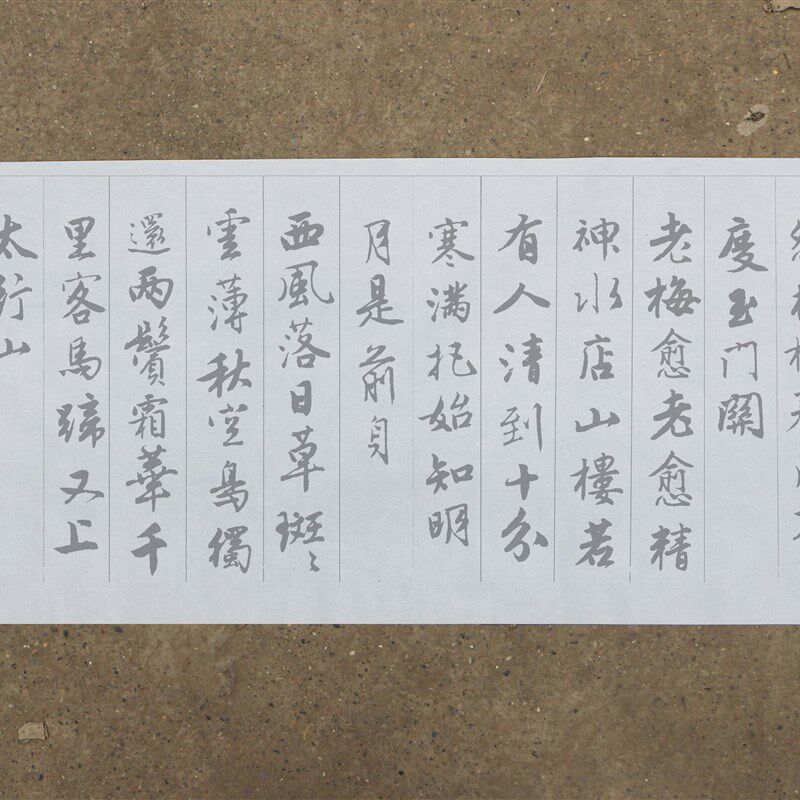 度玉門關
老梅愈老愈精
神水店山樓若
有人清到十分
寒滿把始知明
月是前身
西風落日草斑〻
雲薄秋空鳥獨
還兩鬢霜華千
里客馬蹄又上
太行山